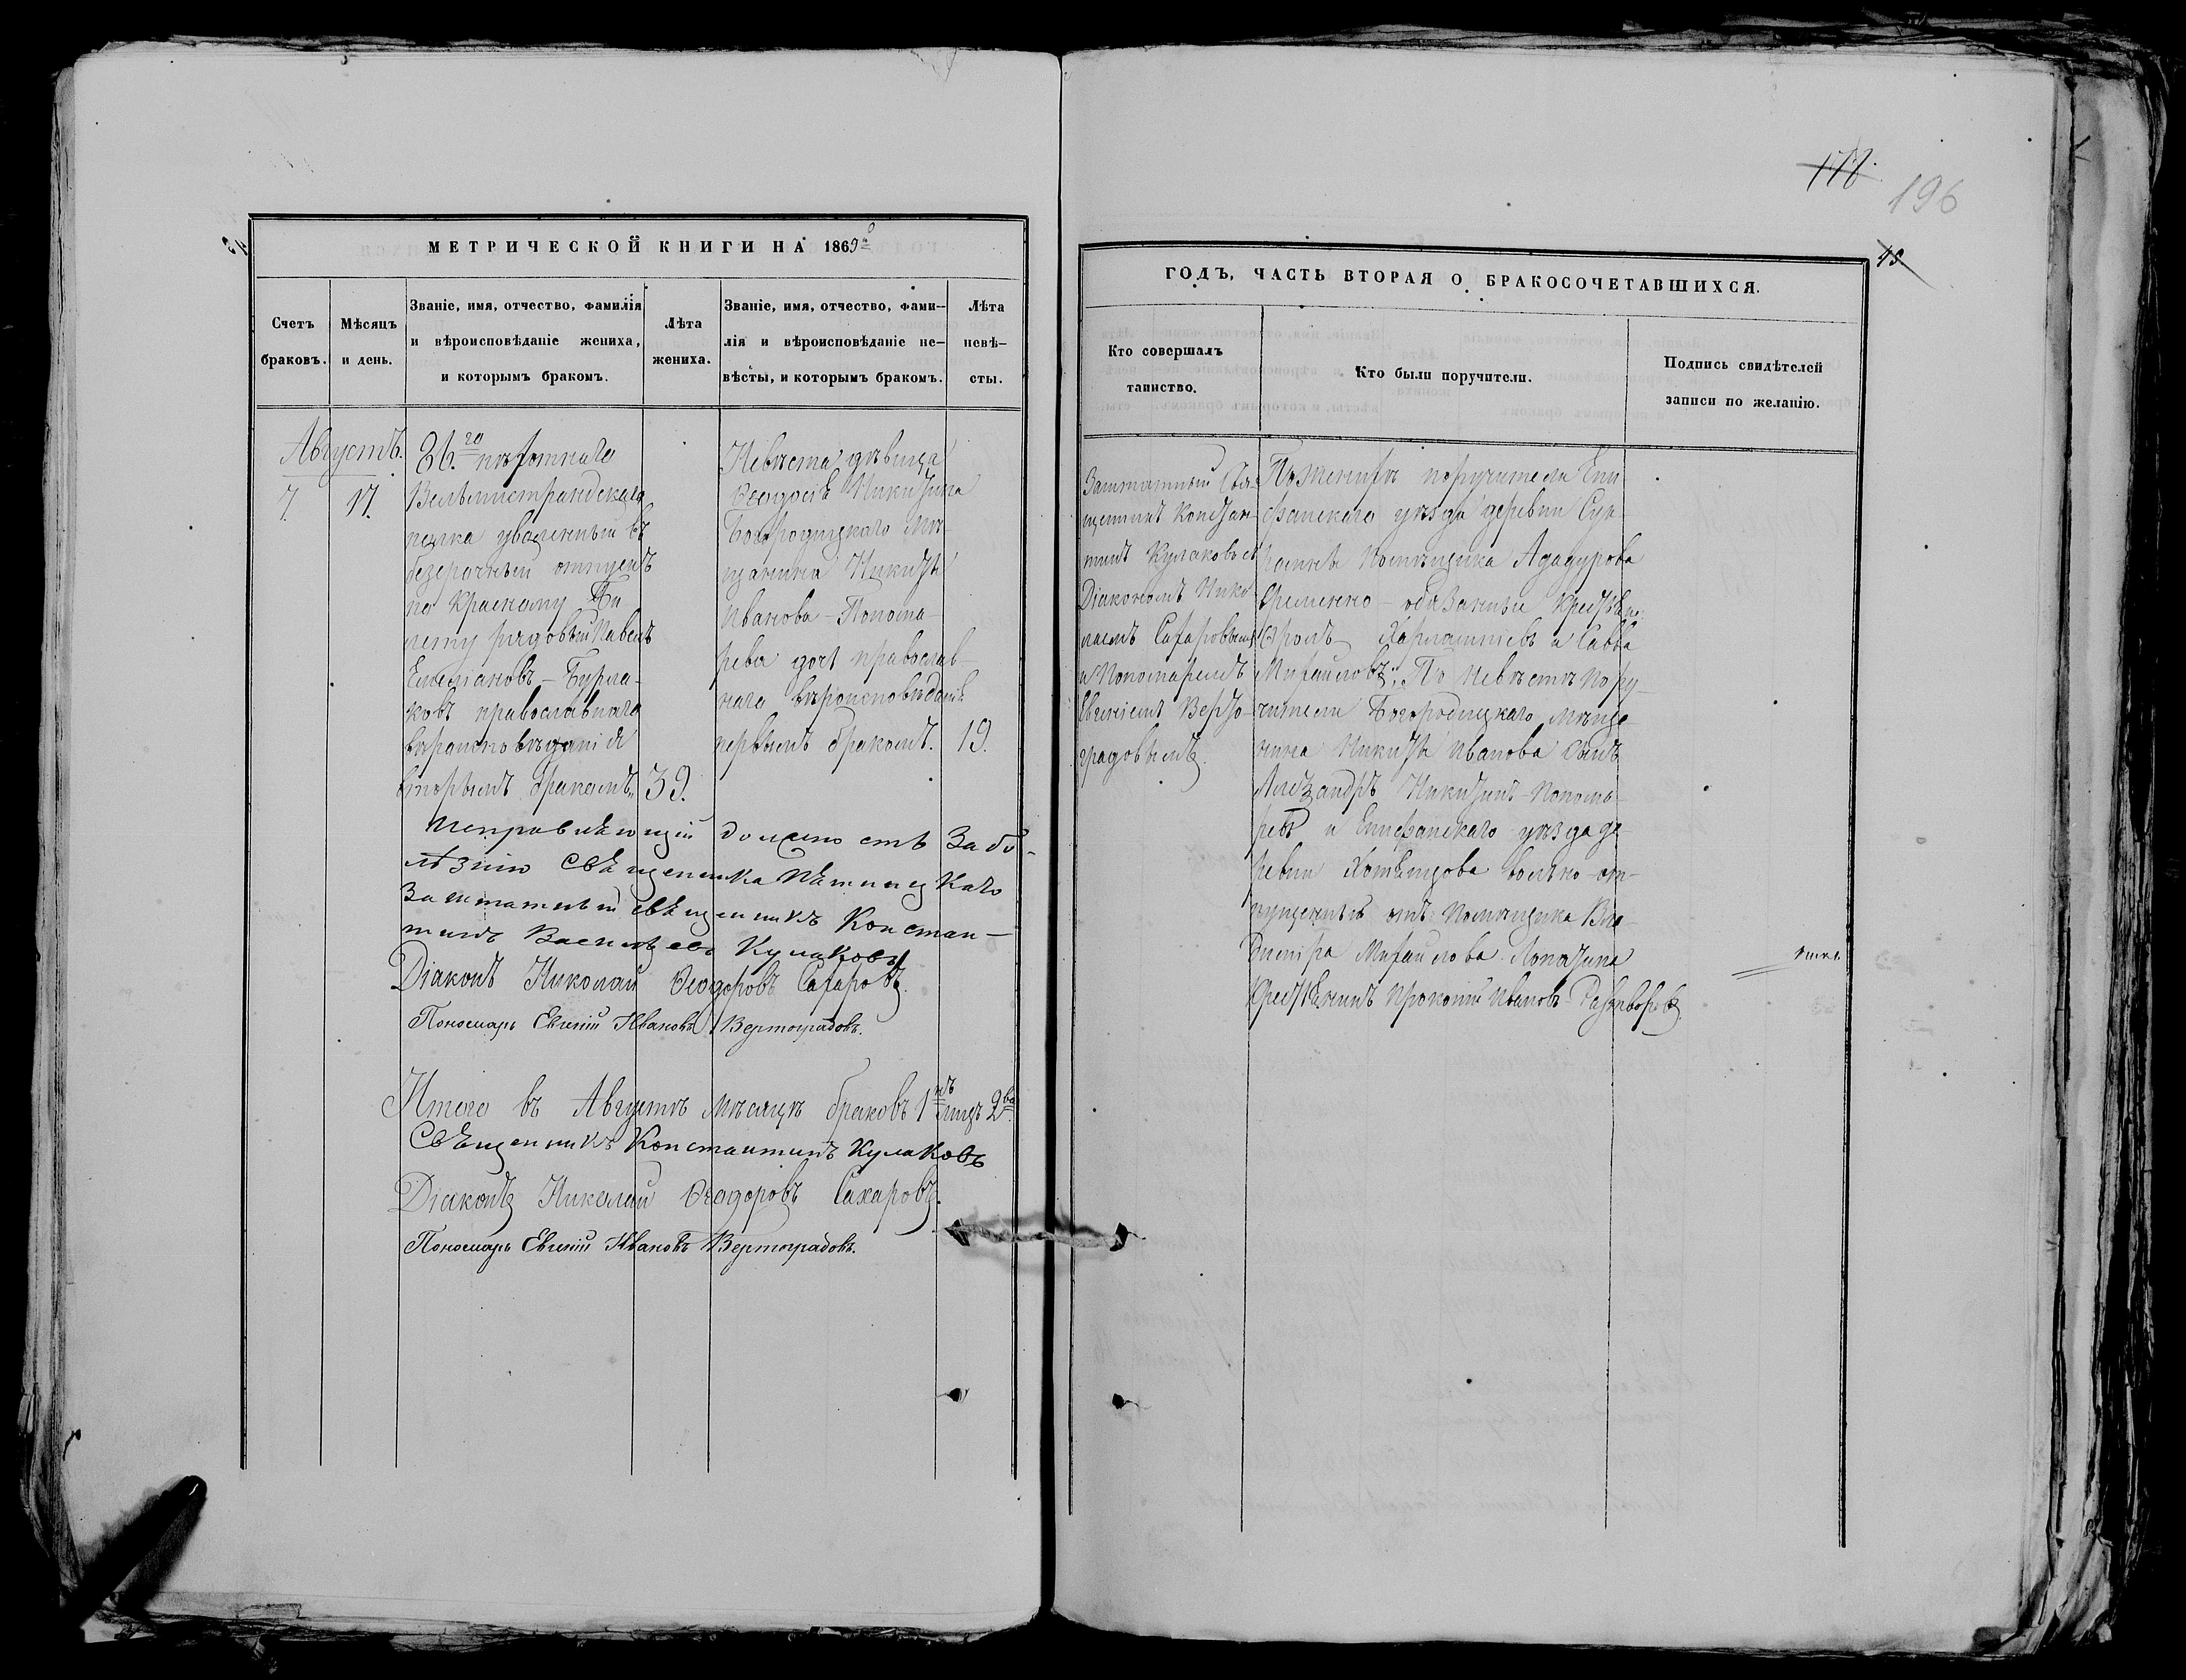 177.
196
45
МЕТРИЧЕСКОЙ КНИГИ НА 1869й
Счетъ браковъ.
Мѣсяцъ и день.
Званіе, имя, отчество, фамилія
и вѣроисповѣданіе жениха,
и которымъ бракомъ.
Лѣта жениха.
Званіе, имя, отчество, фами-
лія и вѣроисповѣданіе не-
вѣсты, и которымъ бракомъ.
Лѣта невѣ-
сты.
Августъ.
7.
17.
86.го пѣхотнаго
Вельмистрандскаго
полка уволенный въ
безсрочный отпускъ
по красному Би
лету рядовый Павелъ
Емеліановъ - Бурла-
ковъ православнаго
вѣроисповѣданія
вторымъ бракомъ.
39.
Невѣста дѣвица
Ѳеодосія Никитина
Богородицкаго мѣ
щанина Никиты
Иванова - Понома-
рева дочь православ
наго вѣроисповѣданія
первымъ бракомъ.
19.
Исправляющій должность За бо-
лѣзнію Священника Пятницкаго
Заштатный священникъ Констан-
тинъ Васильевъ Кулаковъ
Діаконъ Николай Ѳеодоровъ Сахаровъ.
Пономарь Евгеній Ивановъ Вертоградовъ.
Итого въ Августѣ мѣсяцѣ браковъ 1нъ лицъ 2ва.
Священникъ Константинъ Кулаковъ
Діаконъ Николай Ѳеодоровъ Сахаровъ.
Пономарь Евгеній Ивановъ Вертоградовъ.
ГОДЪ, ЧАСТЬ ВТОРАЯ О БРАКОСОЧЕТАВШИХСЯ.
Кто совершалъ
таинство.
Кто были поручители.
Подпись свидѣтелей
записи по желанію.
Заштатный Свя-
щенникъ Констан-
тинъ Кулаковъ съ
Діакономъ Нико
лаемъ Сахаровымъ
и Пономаремъ
Евгеніемъ Верто-
градовымъ.
По женихѣ поручители Епи
фанскаго уѣзда деревни
помѣщика Ададурова
временно - обязанные крестьяне
Харлампіевъ и Савва
Михайловъ; По невѣстѣ пору-
чители Богородицкаго мѣща-
нина Никиты Иванова сынъ
Александръ Никитинъ - Понома-
ревъ и Епифанскаго уѣзда де-
ревни Хотѣнцова вольно - от-
пущенный отъ Помѣщика Вла-
диміра Михайлова Лопатина
Крестьянинъ Прокопій Ивановъ